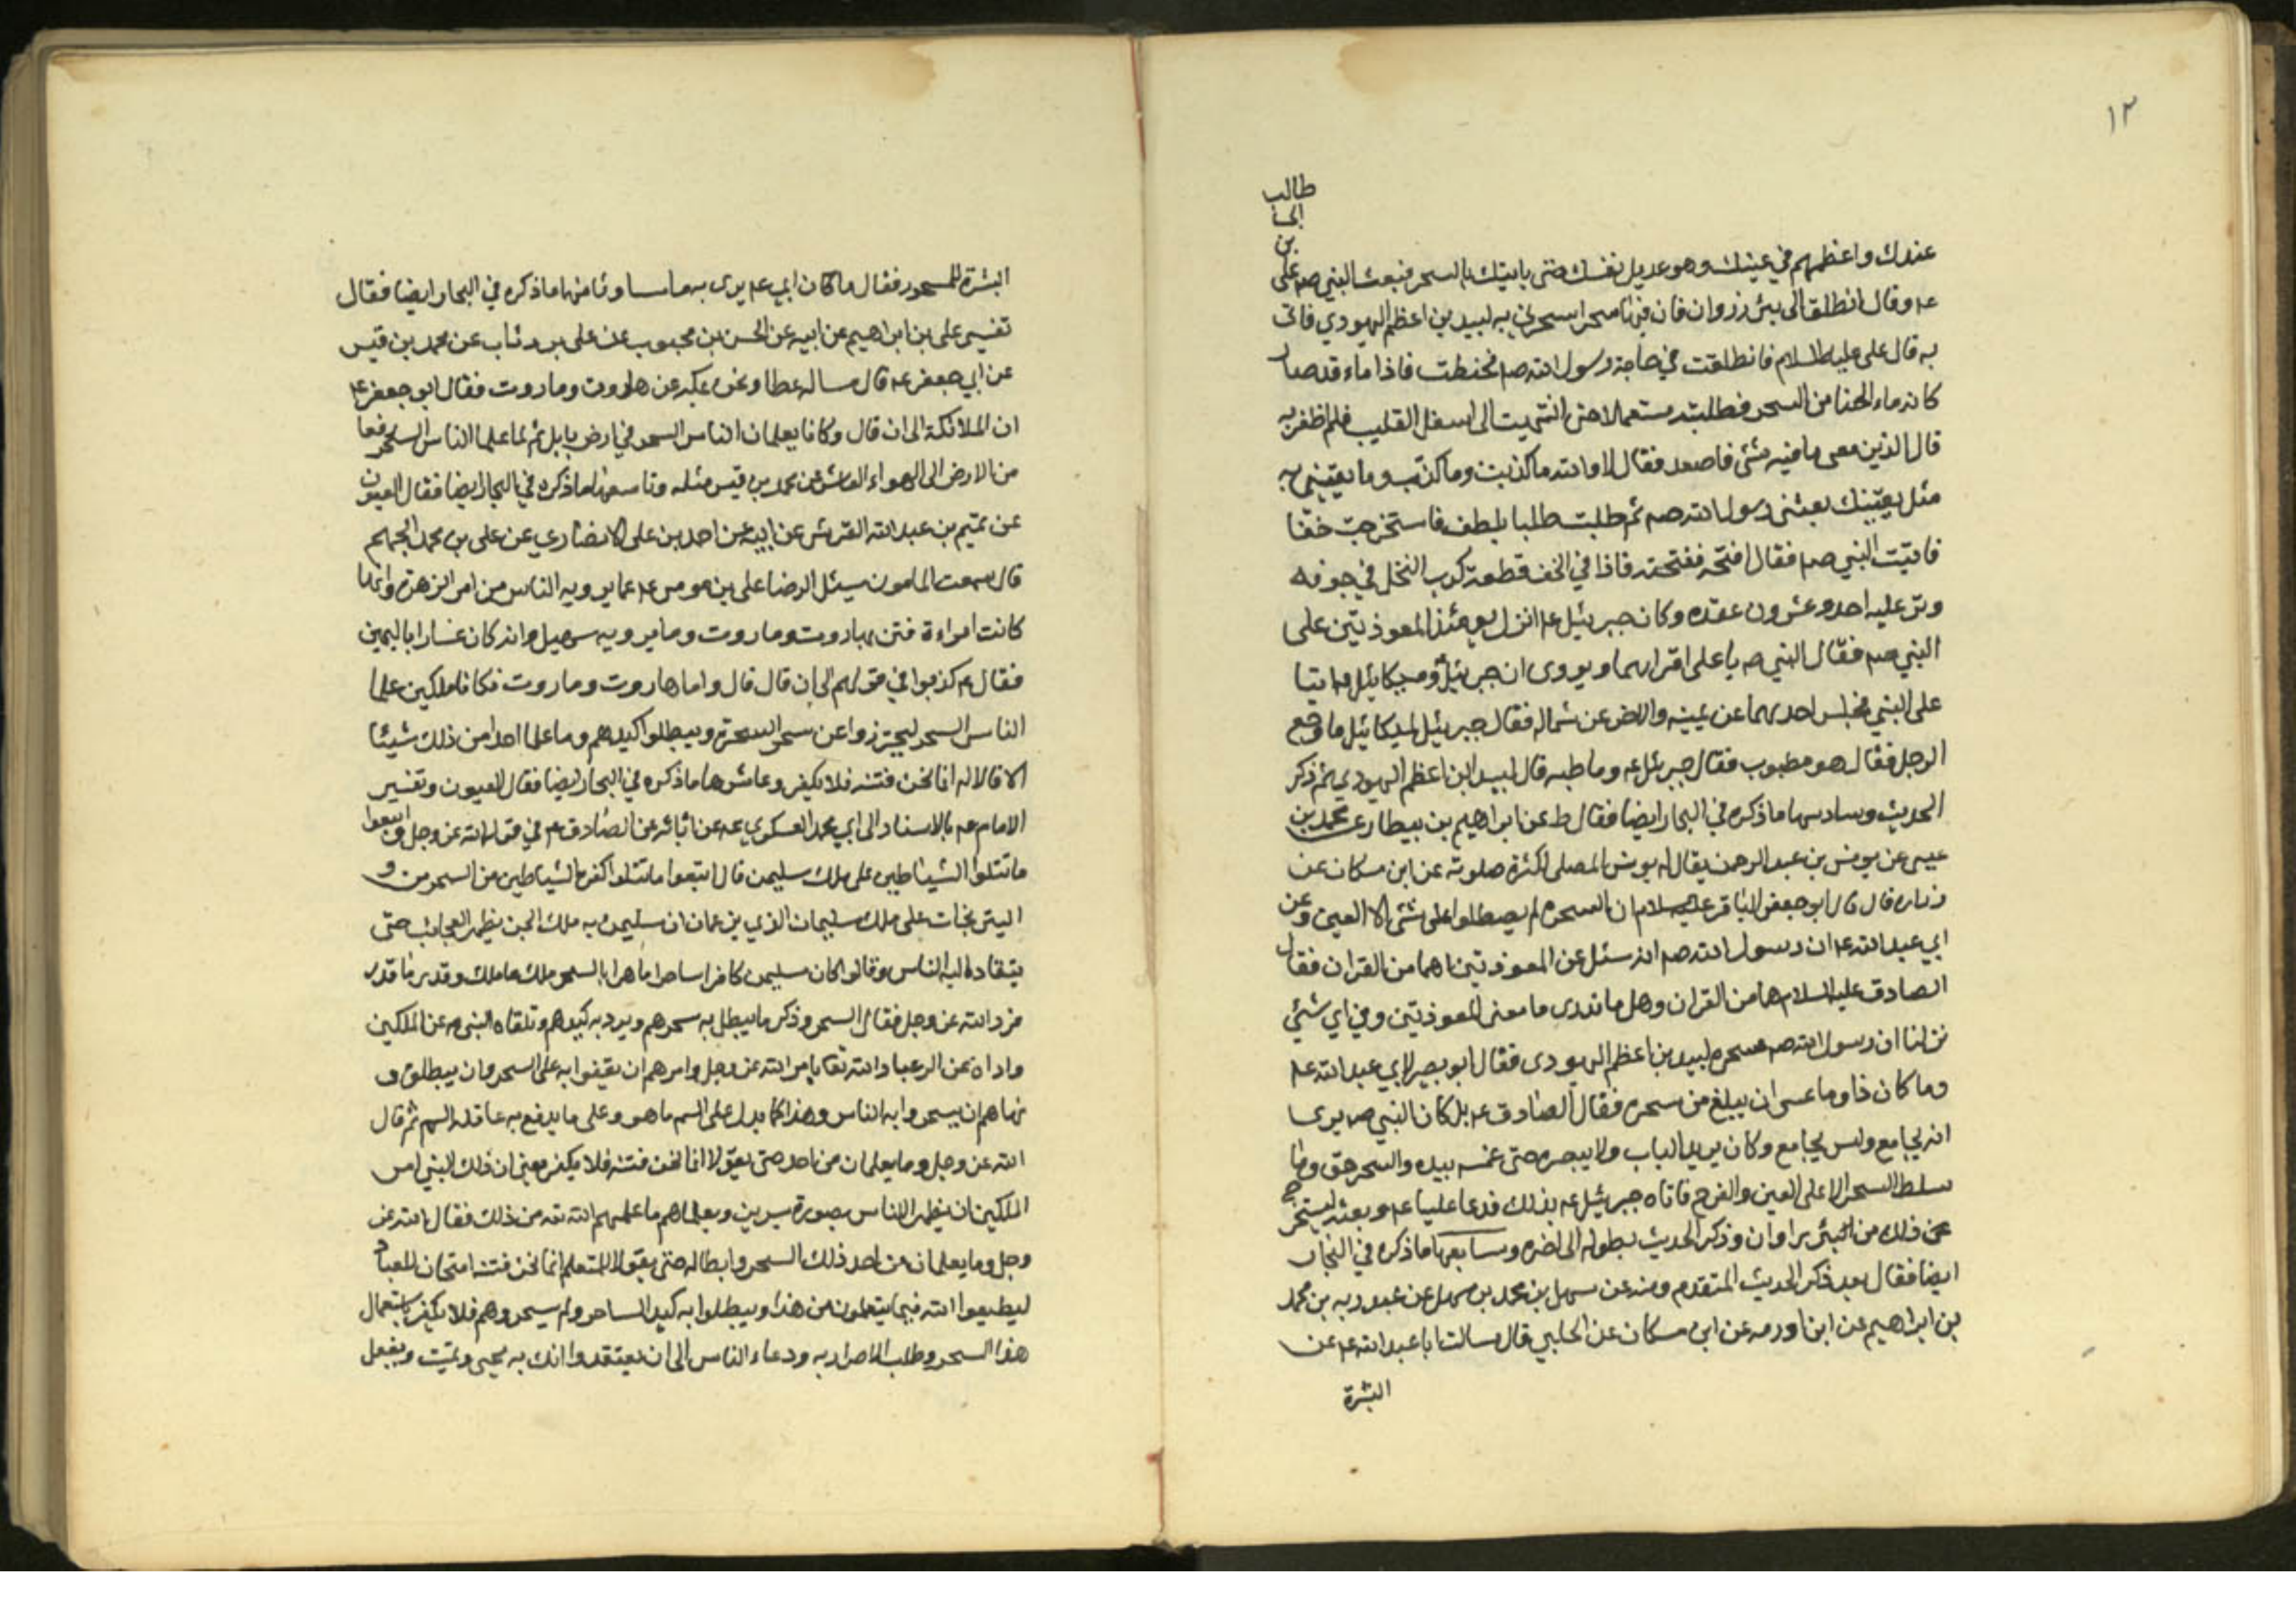 ١٢
طالب
ابی
بن
عندك واعظمهم في عينيك وهو عديل نفسك حتى ياتيك بالسحر فبعث النبي صم علی
عم وقال انطلق الى بئر زروان فان فيها سحرا سحرني به لبيد بن اعظم اليهودي فاتني
به قال علي عليه السلام فانطلقت في حاجة رسول الله صم فهبطت فاذا ماء قد صار
كانه ماء الحنا من السحر فطلبته مستعجلا حتى انتهيت الى اسفل القليب فلم اظفر به
قال الذين معي ما فيه شئ فاصعد فقال لا والله ما كذبت وما كذّب وما يقيني به
مثل يقينك بعثني رسول الله صم ثم طلبت طلبا بلطف فاستخرجت حقا
فاتيت النبي صم فقال افتحه ففتحته فاذا في الحق قطعة كرب النخل في جوفه
وتر عليه احد وعشرون عقده وكان جبرئيل عم انزل يومئذ المعوذتين على
النبي صم فقال النبي ص يا علي اقراهما ويروى ان جبرئيل وميكائيل عم اتيا
على النبي فجلس احدهما عن يمينه والاخر عن شماله فقال جبرئيل لميكائيل ما وجع
الرجل فقال هو مطبوب فقال جبرئيل عم وما طبه قال لبيد ابن اعظم اليهودي ثم ذكر
الحديث وسادسها ما ذكره في البحار ايضا فقال ط عن ابراهيم بن بيطار عن محمد بن
عيسى عن يونس بن عبد الرحمن يقال له يونس المصلي لكثرة صلوته عن ابن مسكان عن
زراره قال قال ابو جعفر الباقر عليه السلام ان السحره لم يسطلوا على شئ الا العين وعن
ابي عبد الله عم ان رسول الله صم انه سئل عن المعوذتين اهما من القران فقال
الصادق عليه السلام هما من القران وهل ما تدري ما معنى المعوذتين وفي اي شئي
نزلنا ان رسول الله صم سحره لبيد بن اعظم اليهودي فقال ابو بصير لابي عبد الله عم
وما كان ذا وما عسى ان يبلغ من سحره فقال الصادق عم بل كان النبي ص يرى
انه يجامع وليس يجامع وكان يريد الباب ولا يبصره حتى يمسه بيده والسحر حق وما
سلط السحر الا على العين والفرج فاتاه جبرئيل عم بذلك فدعا عليا عم وبعثه ليستخرج
عن ذلك من البئر براوان وذكر الحديث بطوله الى اخره وسابعها ما ذكره في البحار
ايضا فقال بعد ذكر الحديث المتقدم ومنه عن سهل بن محمد بن سهل عن عبد ربه بن محمد
بن ابراهيم عن ابن اورمه عن ابن مسكان عن الحلبي قال سالت ابا عبد الله عم عن
النشرة
النشرة للمسحور فقال ما كان ابي عم يرى به باسا وثامنها ما ذكره في البحار ايضا فقال
تفسير علي بن ابراهيم عن ابيه عن الحسن بن محبوب عن علي بن رئاب عن محمد بن قيس
عن ابي جعفر عم قال ساله عطا ونحن بمكه عن هاروت وماروت فقال ابو جعفر عم
ان الملائكة الى ان قال وكانا يعلمان الناس السحر في ارض بابل ثم لما علما الناس السحر رفعا
من الارض الى الهواء العاشر عن محمد بن قيس مثله وتاسعها ما ذكره في البحار ايضا فقال العيون
عن تميم بن عبد الله القرشي عن ابيه عن احمد بن علي الانصاري عن علي بن محمد الجهم
قال سمعت المامون سئل الرضا علي بن موسى عم عما يرويه الناس من امر الزهرة وانها
كانت امراءة فتن بهاروت وماروت وما يرويه سهيل وانه كان عشارا باليمن
فقال عم كذبوا في قولهم الى ان قال قال واما هاروت وماروت فكانا ملكين علما
الناس السحر ليحترزوا عن سحر السحرة ويبطلوا كيدهم وما علما احدا من ذلك شيئا
الا قالا له انما نحن فتنه فلا تكفر وعاشرها ما ذكره في البحار ايضا فقال العيون وتفسير
الامام عم بالاسناد الى ابي محمد العسكري عم عن ابائه عن الصادق عم في قول الله عز وجل واتبعوا
ما تتلوا الشياطين على ملك سليمن قال اتبعوا ما تتلوا كفرة الشياطين من السحر من و
اليترنجات على ملك سليمان الذي يزعمان ان سليمن به ملك الجن يظهر العجائب حتى
ينقاد اليه الناس وقالوا كان سليمن كافرا ساحرا ماهرا بالسحر ملك ما ملك وقدر ما قدر
فرد الله عز وجل فقال السحر وذكر ما يبطل به سحرهم ويرد به كيدهم وتلقاه النبي عن الملكين
واداه عن الى عباد الله تعا بامر الله عز وجل وامرهم ان يقفوا به على السحر وان يبطلوه و
نهاهم ان يسحروا به الناس وهذا كما يدل على السم ما هو وعلى ما يدفع به غائلة السم ثم قال
الله عز وجل وما يعلمان من احد حتى يقولا انما نحن فتنه فلا تكفر يعني ان ذلك النبي امر
الملكين ان يظهر للناس بصورة بشرين ويعلماهم ما علمهم الله تع من ذلك فقال الله عز
وجل وما يعلمان من احد ذلك السحر وابطاله حتى يقولا للمتعلم انما نحن فتنه امتحان للعباد
ليطيعوا الله فيما يتعلمون من هذا ويبطلوا به كيد الساحر ولم يسحروهم فلا تكفر باستعمال
هذا السحر وطلب الاضرار به ودعاء الناس الى ان يعتقدوا انك به تحيى وتميت وتفعل